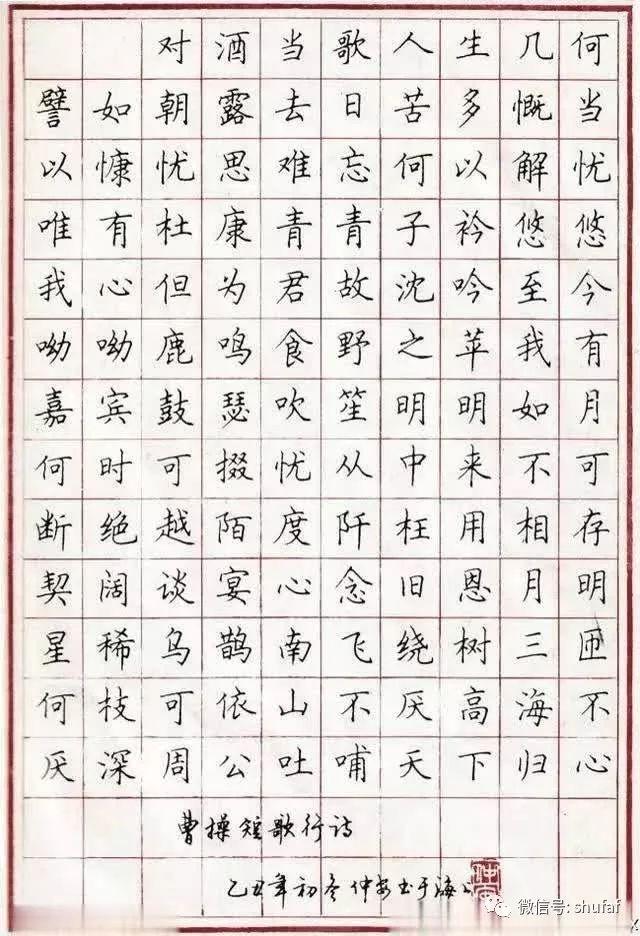 对酒当歌人生几何
譬如朝露去日苦多慨当
以慷忧思难忘何以解忧
唯有杜康青青子衿悠悠
我心但为君故沈吟至今
呦呦鹿鸣食野之苹我有
嘉宾鼓瑟吹笙明明如月
何时可掇忧从中来不可
断绝越陌度阡枉用相存
契阔谈宴心念旧恩月明
星稀乌鹊南飞绕树三匝
何枝可依山不厌高海不
厌深周公吐哺天下归心
曹操短歌行诗
乙丑年初冬仲安书于海
微信号: shufaf